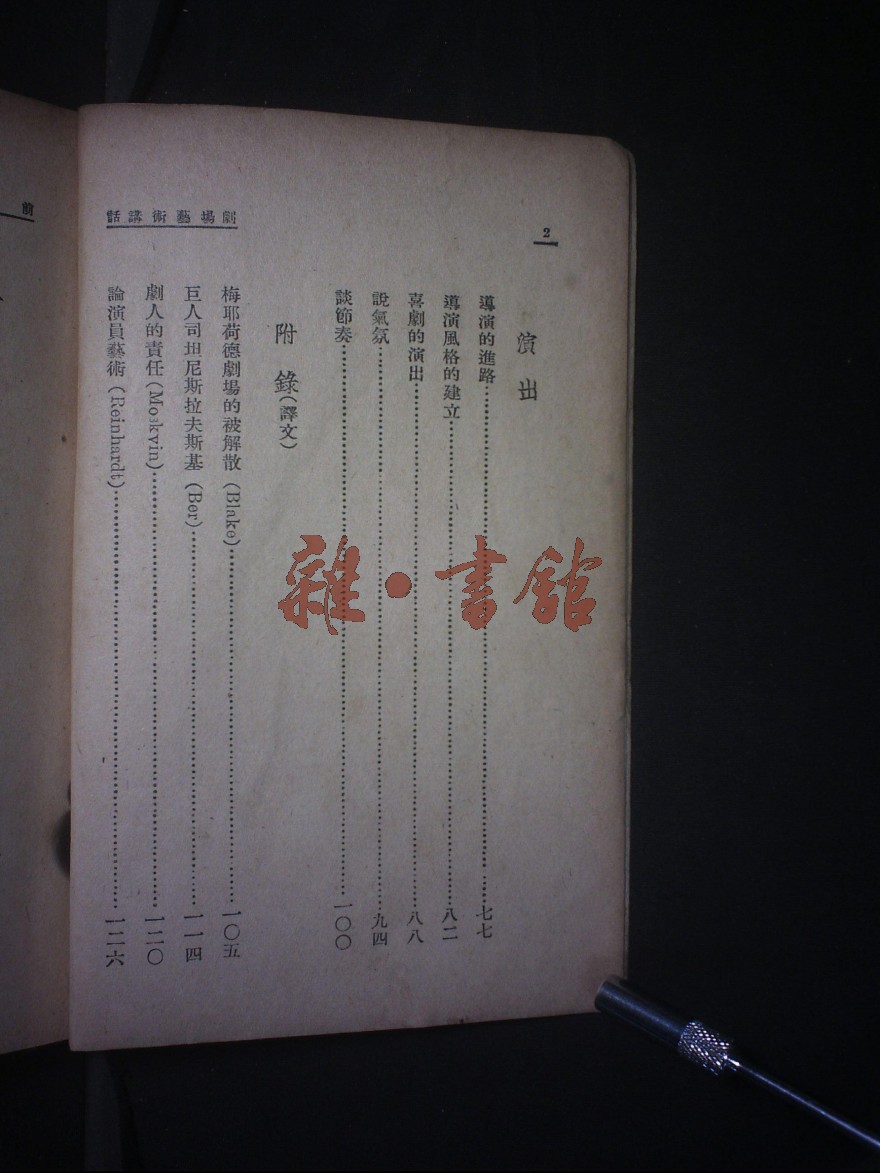 劇場藝術講話
2
演出
導演的進路……………………七七
導演風格的建立……………………八二
喜劇的演出……………………八八
說氣氛……………………九四
談節奏……………………一〇〇
附錄(譯文)
梅耶荷德劇場的被解散(Blake)……………………一〇五
巨人司坦尼斯拉夫斯基(Ber)……………………一一四
劇人的責任(Moskvin)……………………一二〇
論演員藝術(Reinhardt)……………………一二六
前
雜·書館